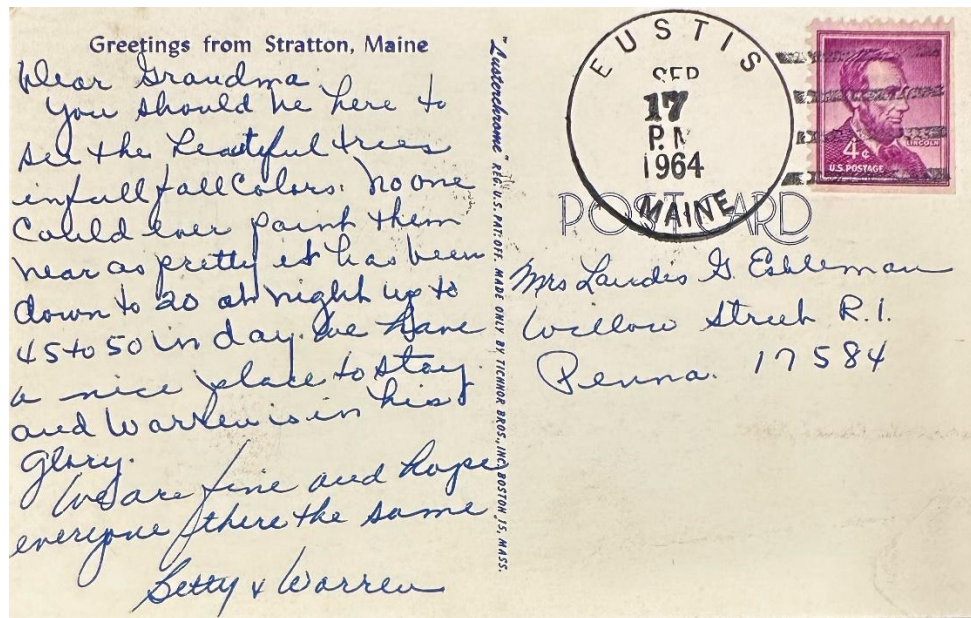 Greetings from Stratton, Maine
Dear Grandma
You should be here to
see the beautiful trees
in full fall colors. No one
could ever paint them
near as pretty it has been
down to 20 at night up to
45 to 50 in day. We have
a nice place to stay.
and Warren is in his
glory.
We are fine and hope
everyone there the same
Betty & Warren
"Lusterchrome" REG. U.S. PAT. OFF. MADE ONLY BY TICHNOR BROS., INC. BOSTON 15, MASS.
EUSTIS
SEP
17
P.M
1964
MAINE
4¢
LINCOLN
U.S. POSTAGE
POST CARD
Mrs Landis G. Eshleman
Willow Street R.1.
Penna. 17584